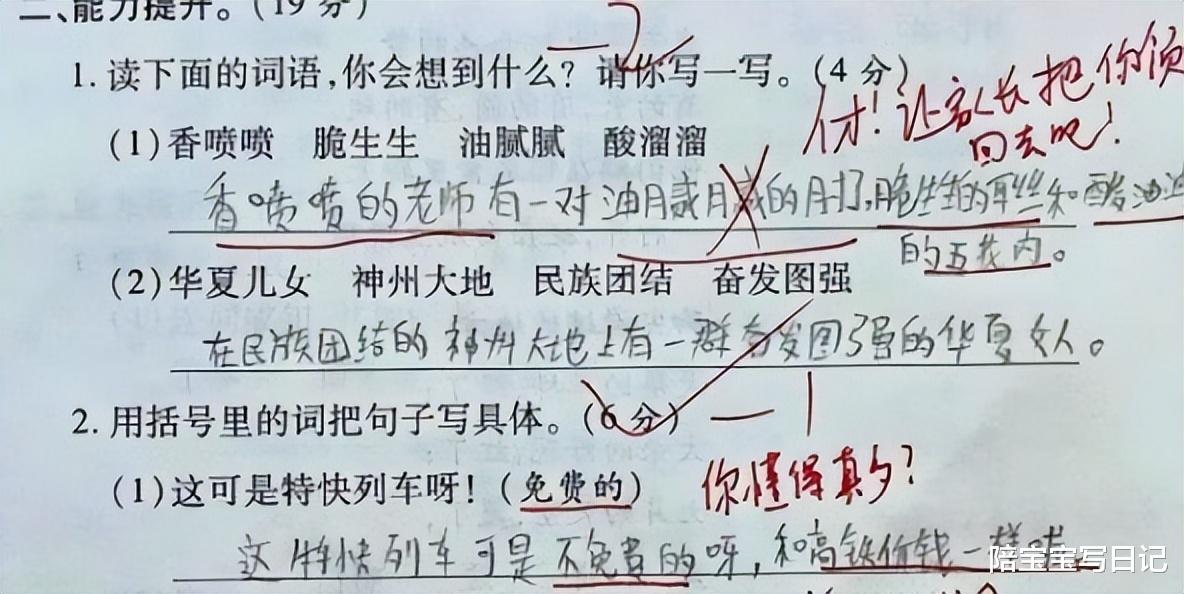 二、能力提升。(19分)
-2
1.读下面的词语,你会想到什么?请你写一写。(4分)
人才!让家长把你领
回去吧!
(1)香喷喷 脆生生 油腻腻 酸溜溜
香喷喷的老师有一对油腻腻的肘子,脆生生的耳丝和酸溜溜
的五花肉。
(2)华夏儿女 神州大地 民族团结 奋发图强
在民族团结的神州大地上有一群奋发图强的华夏女人。
2.用括号里的词把句子写具体。(6分)
-1
(1)这可是特快列车呀!(免费的)
你懂得真多?
这特快列车可是不免费的呀,和高铁价钱一样
陪宝宝写日记